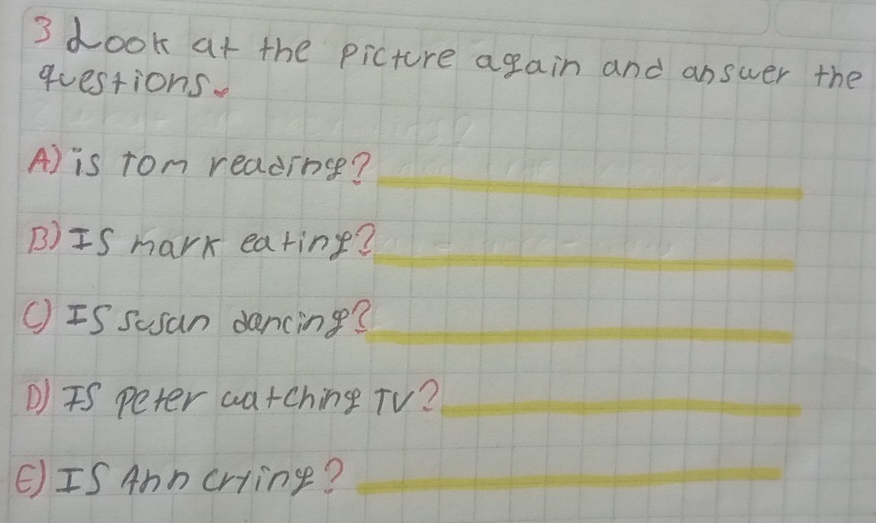 3 Look at the picture again and answer the
questions.
A) is Tom reading?
B) IS mark eating?
C) IS Susan dancing?
D) IS peter watching TV?
E) IS Ann crying?